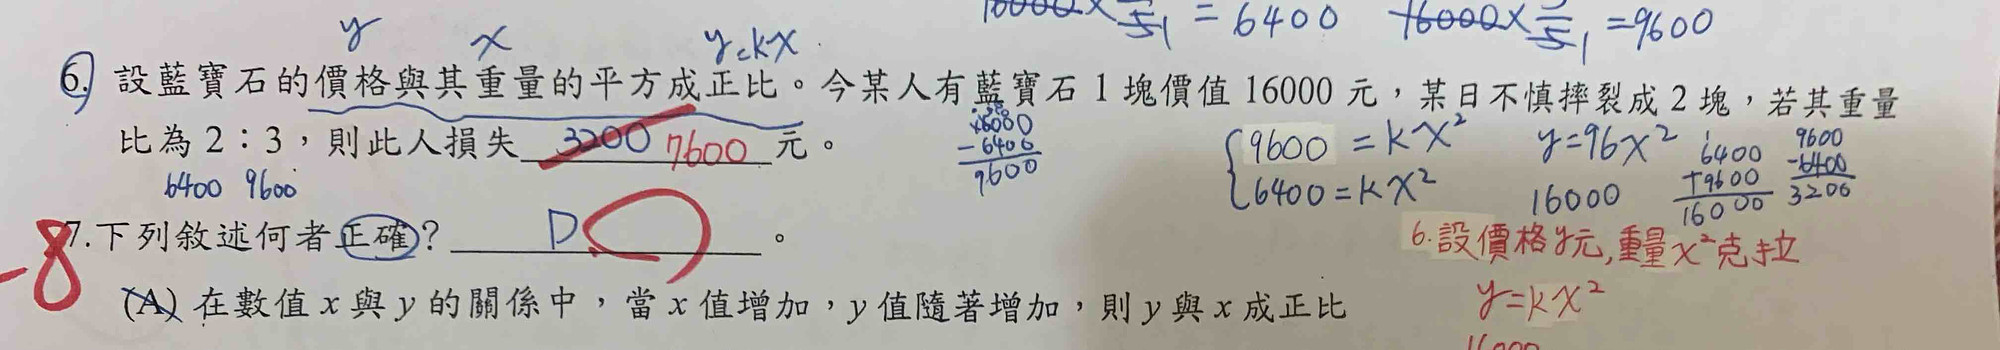 16000×    51 = 6400 16000×    51 =9600
y x y=kx
6. 設藍寶石的價格與其重量的平方成正比。今某人有藍寶石 1 塊價值 16000 元，某日不慎摔裂成 2 塊，若其重量
比為 2：3，則此人損失 3200 7600 元。
6400 9600
16000
-6400
9600
9600 = kx²
6400 = kx²
y=96x²
16000
6400
+9600
16000
9600
-6400
3200
7.下列敘述何者正確? D 。
-8
6.設價格y元,重量x²克拉
y=kx²
(A) 在數值 x 與 y 的關係中，當 x 值增加，y 值隨著增加，則 y 與 x 成正比